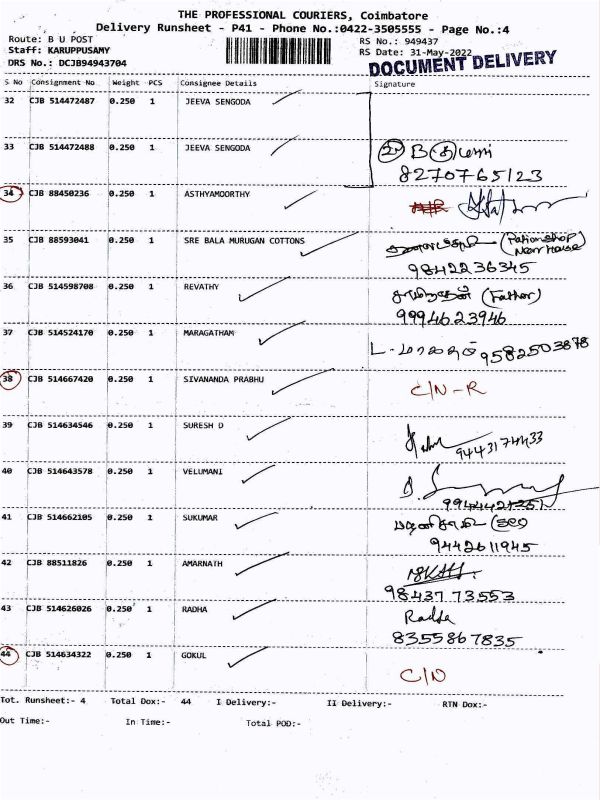 THE PROFESSIONAL COURIERS, Coimbatore
Delivery Runsheet - P41 - Phone No.:0422-3505555 - Page No.:4
Route: B U POST
RS No.: 949437
Staff: KARUPPUSAMY
RS Date: 31-May-2022
DRS No.: DCJB94943704
DOCUMENT DELIVERY
S No Consignment No. Weight PCS Consignee Details Signature
32 CJB 514472487 0.250 1 JEEVA SENGODA
33 CJB 514472488 0.250 1 JEEVA SENGODA
8270765123
34 CJB 88450236 0.250 1 ASTHYAMOORTHY
35 CJB 88593041 0.250 1 SRE BALA MURUGAN COTTONS
Near House)
9842236345
36 CJB 514598708 0.250 1 REVATHY
(Father)
9994623946
37 CJB 514524170 0.250 1 MARAGATHAM
9582503878
38 CJB 514667420 0.250 1 SIVANANDA PRABHU C/N-R
39 CJB 514634546 0.250 1 SURESH D
9443174433
40 CJB 514643578 0.250 1 VELUMANI
41 CJB 514662105 0.250 1 SUKUMAR
9442611945
42 CJB 88511826 0.250 1 AMARNATH
98437 73553
43 CJB 514626026 0.250 1 RADHA Radha
8355867835
44 CJB 514634322 0.250 1 GOKUL C/N
Tot. Runsheet:- 4 Total Dox:- 44 I Delivery:- II Delivery:- RTN Dox:-
Out Time:- In Time:- Total POD:-